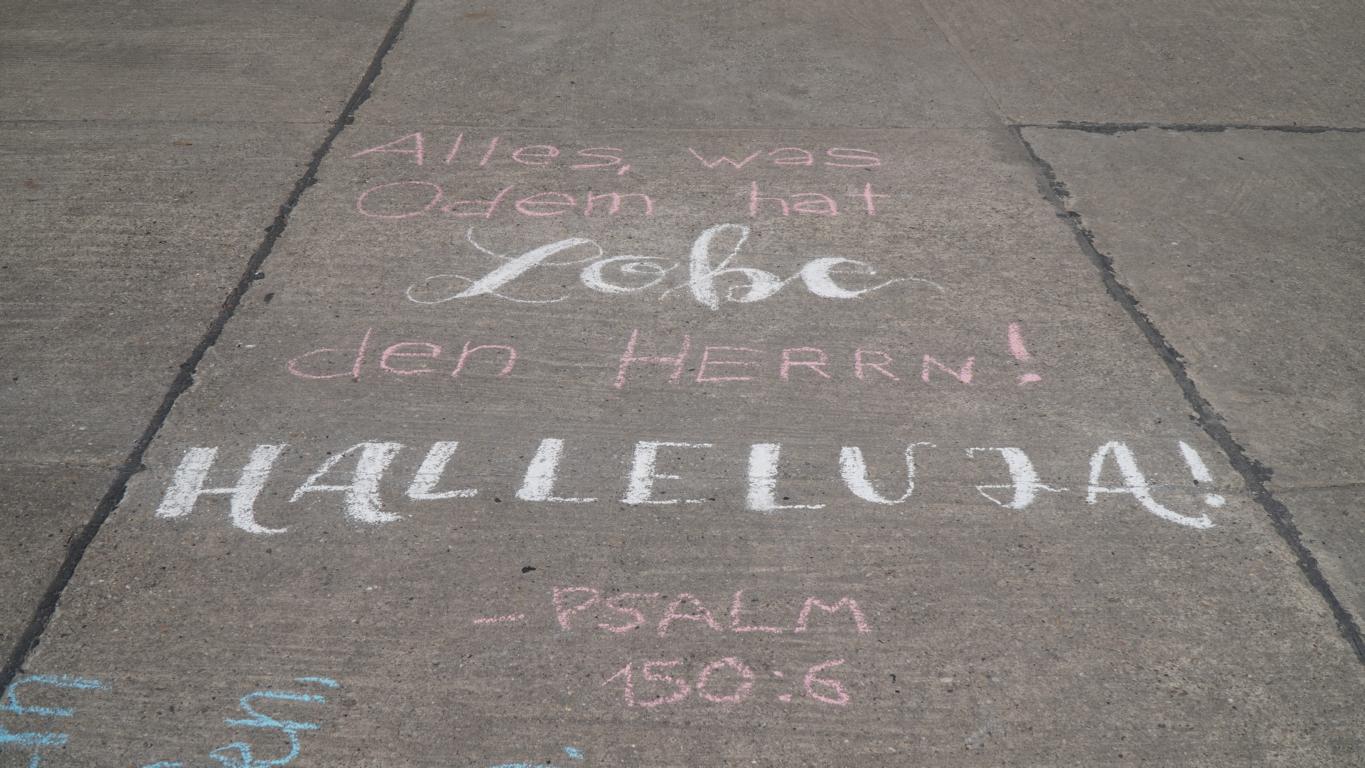 Alles, was
Odem hat
Lobe
den HERRN!
HALLELUJA!
- PSALM
150:6